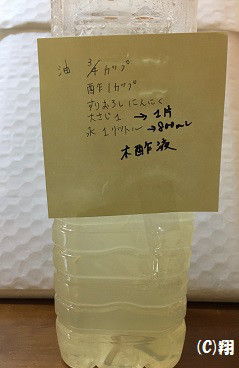 油 3/4カップ
酢1カップ
すりおろしにんにく
大さじ1 → 1片
水1リットル → 800mL
木酢液
(C)翔